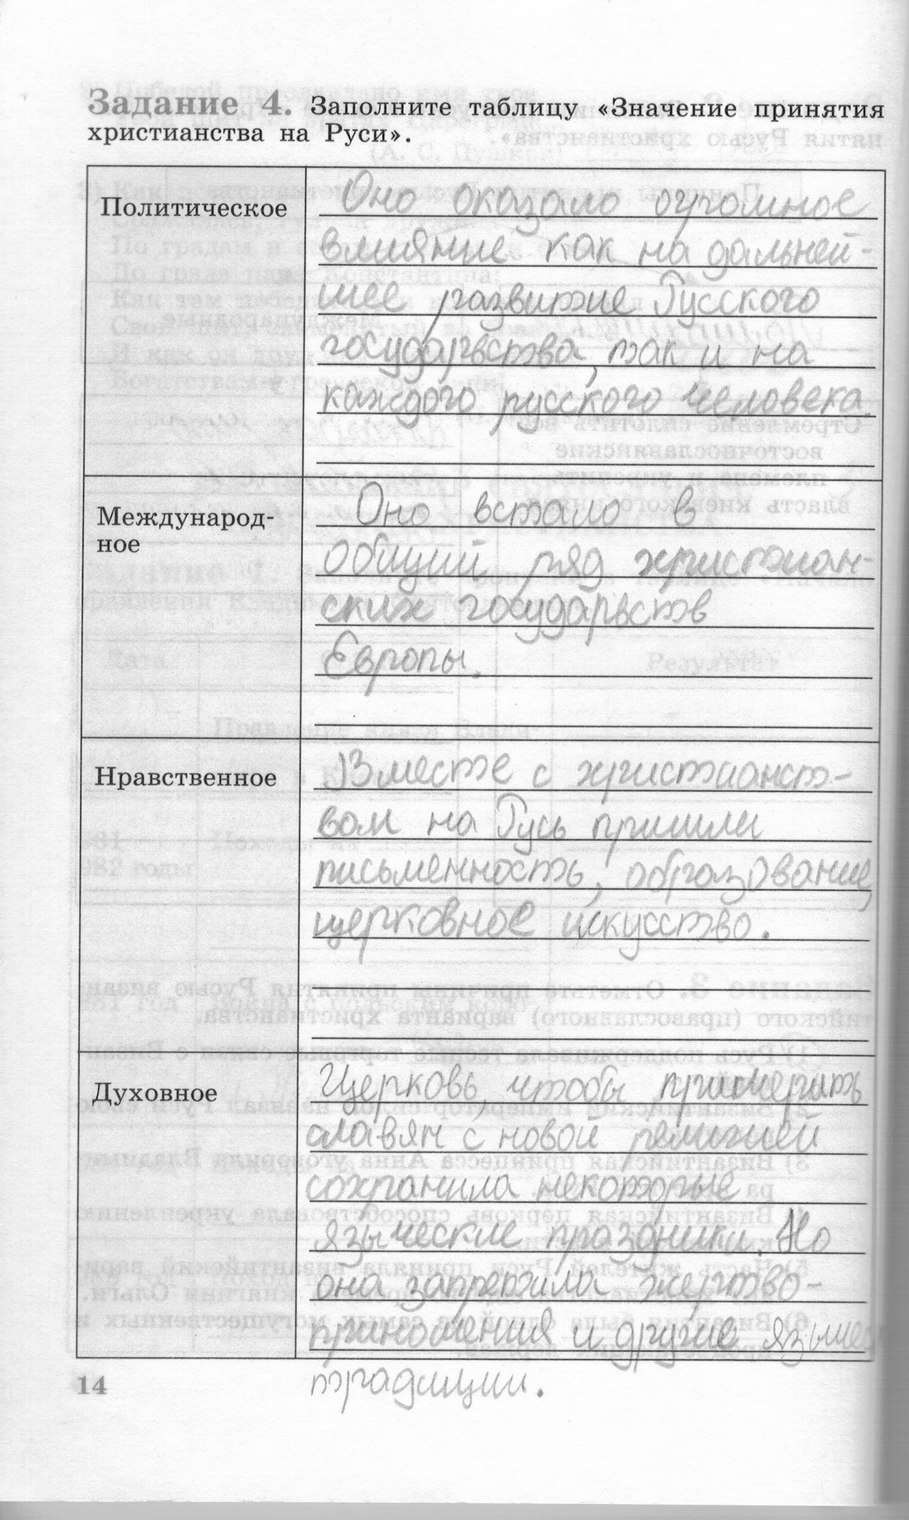 Задание 4. Заполните таблицу «Значение принятия
христианства на Руси».
Политическое
Оно оказало огромное
влияние как на дальней-
шее развитие Русского
государвства, так и на
каждого русского человека.
Международ-
ное
Оно встало в
общий ряд христиан-
ских государьств
Европы.
Нравственное
Вместе с христианст-
вом на Русь пришли
письменность, образование,
церковное искусство.
Духовное
Церковь, чтобы примерить
славян с новой религией
сохранила некоторые
языческие праздники. Но
она запретила жертво-
приношения и другие языче
традиции.
14